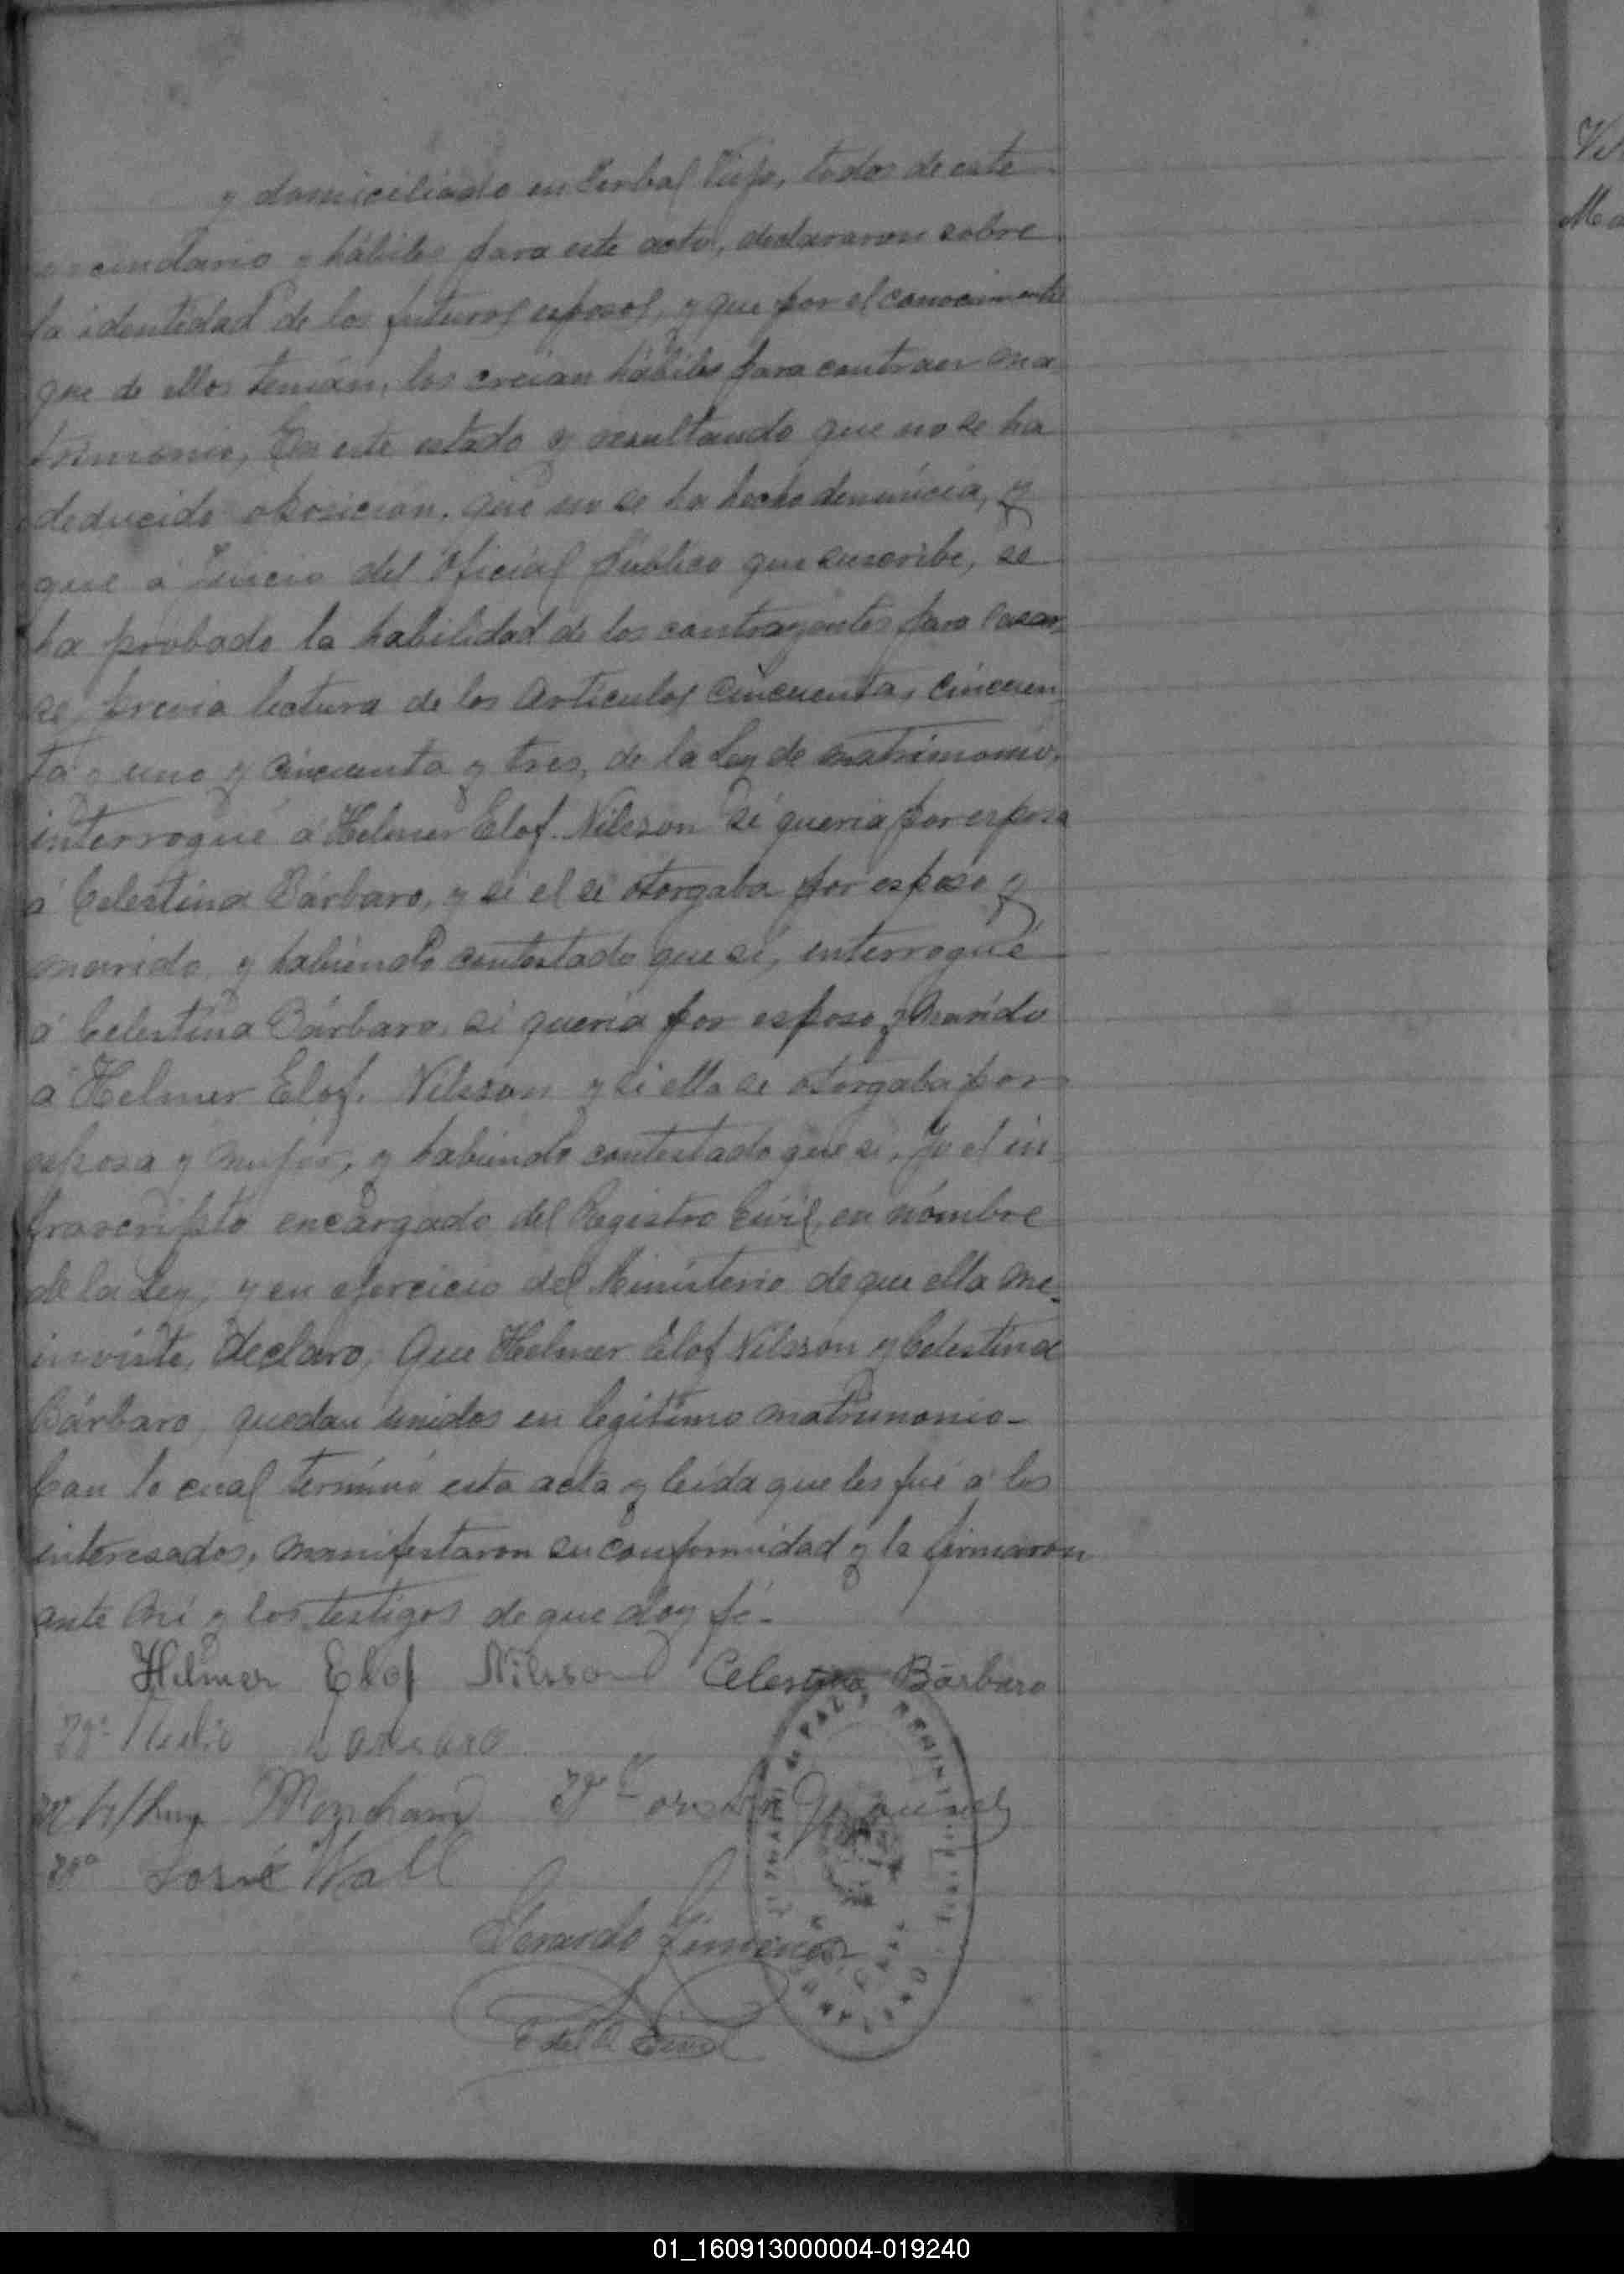 y domiciliado en Yerbal Viejo, todos de este
vecindario y hábiles para este acto, declararon sobre
la identidad de los futuros esposos, y que por el conocimiento
que de ellos tenían, los creían hábiles para contraer ma
trimonio, En este estado y resultando que no se ha
deducido oposicion, que no se ha hecho denúncia, y
que á juicio del Oficial Público que suscribe, se
ha probado la habilidad de los contrayentes para casar
se, previa lectura de los Articulos Cincuenta, Cincuen
ta y uno y Cincuenta y tres, de la Ley de matrimonio,
interrogué á Helmer Elof. Nilsson si queria por esposa
á Celestina Bárbaro, y si el se otorgaba por esposo y
marido, y habiendo contestado que si, interrogué
á Celestina Bárbaro, si queria por esposo y Marido
á Helmer Elof. Nilsson y si ella se otorgaba por
esposa y mujer, y habiendo contestado que si, yo el in
frascripto encargado del Registro Civil, en nómbre
de la Ley, y en ejercicio del Ministerio de que ella me
inviste, declaro, Que Helmer Elof Nilsson y Celestina
Bárbaro, quedan únidos en legítimo matrimonio-
Con lo cual terminó esta acta y leida que les fué á los
interesados, manifestaron su conformidad y la firmaron
ante Mi y los testigos de que doy fé-
Helmer Elof Nilsson Celestina Bárbaro
José Wall
Gerardo Jimenez
E del R Civil
Vi
Ma
01_160913000004-019240